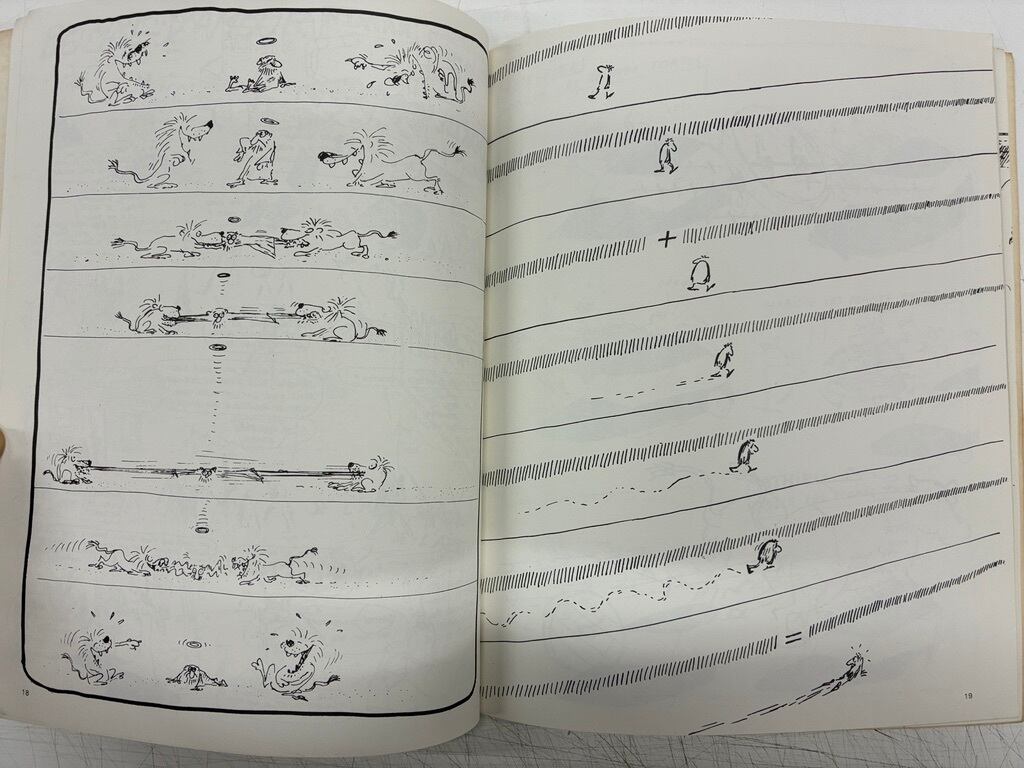 +
=
18
19